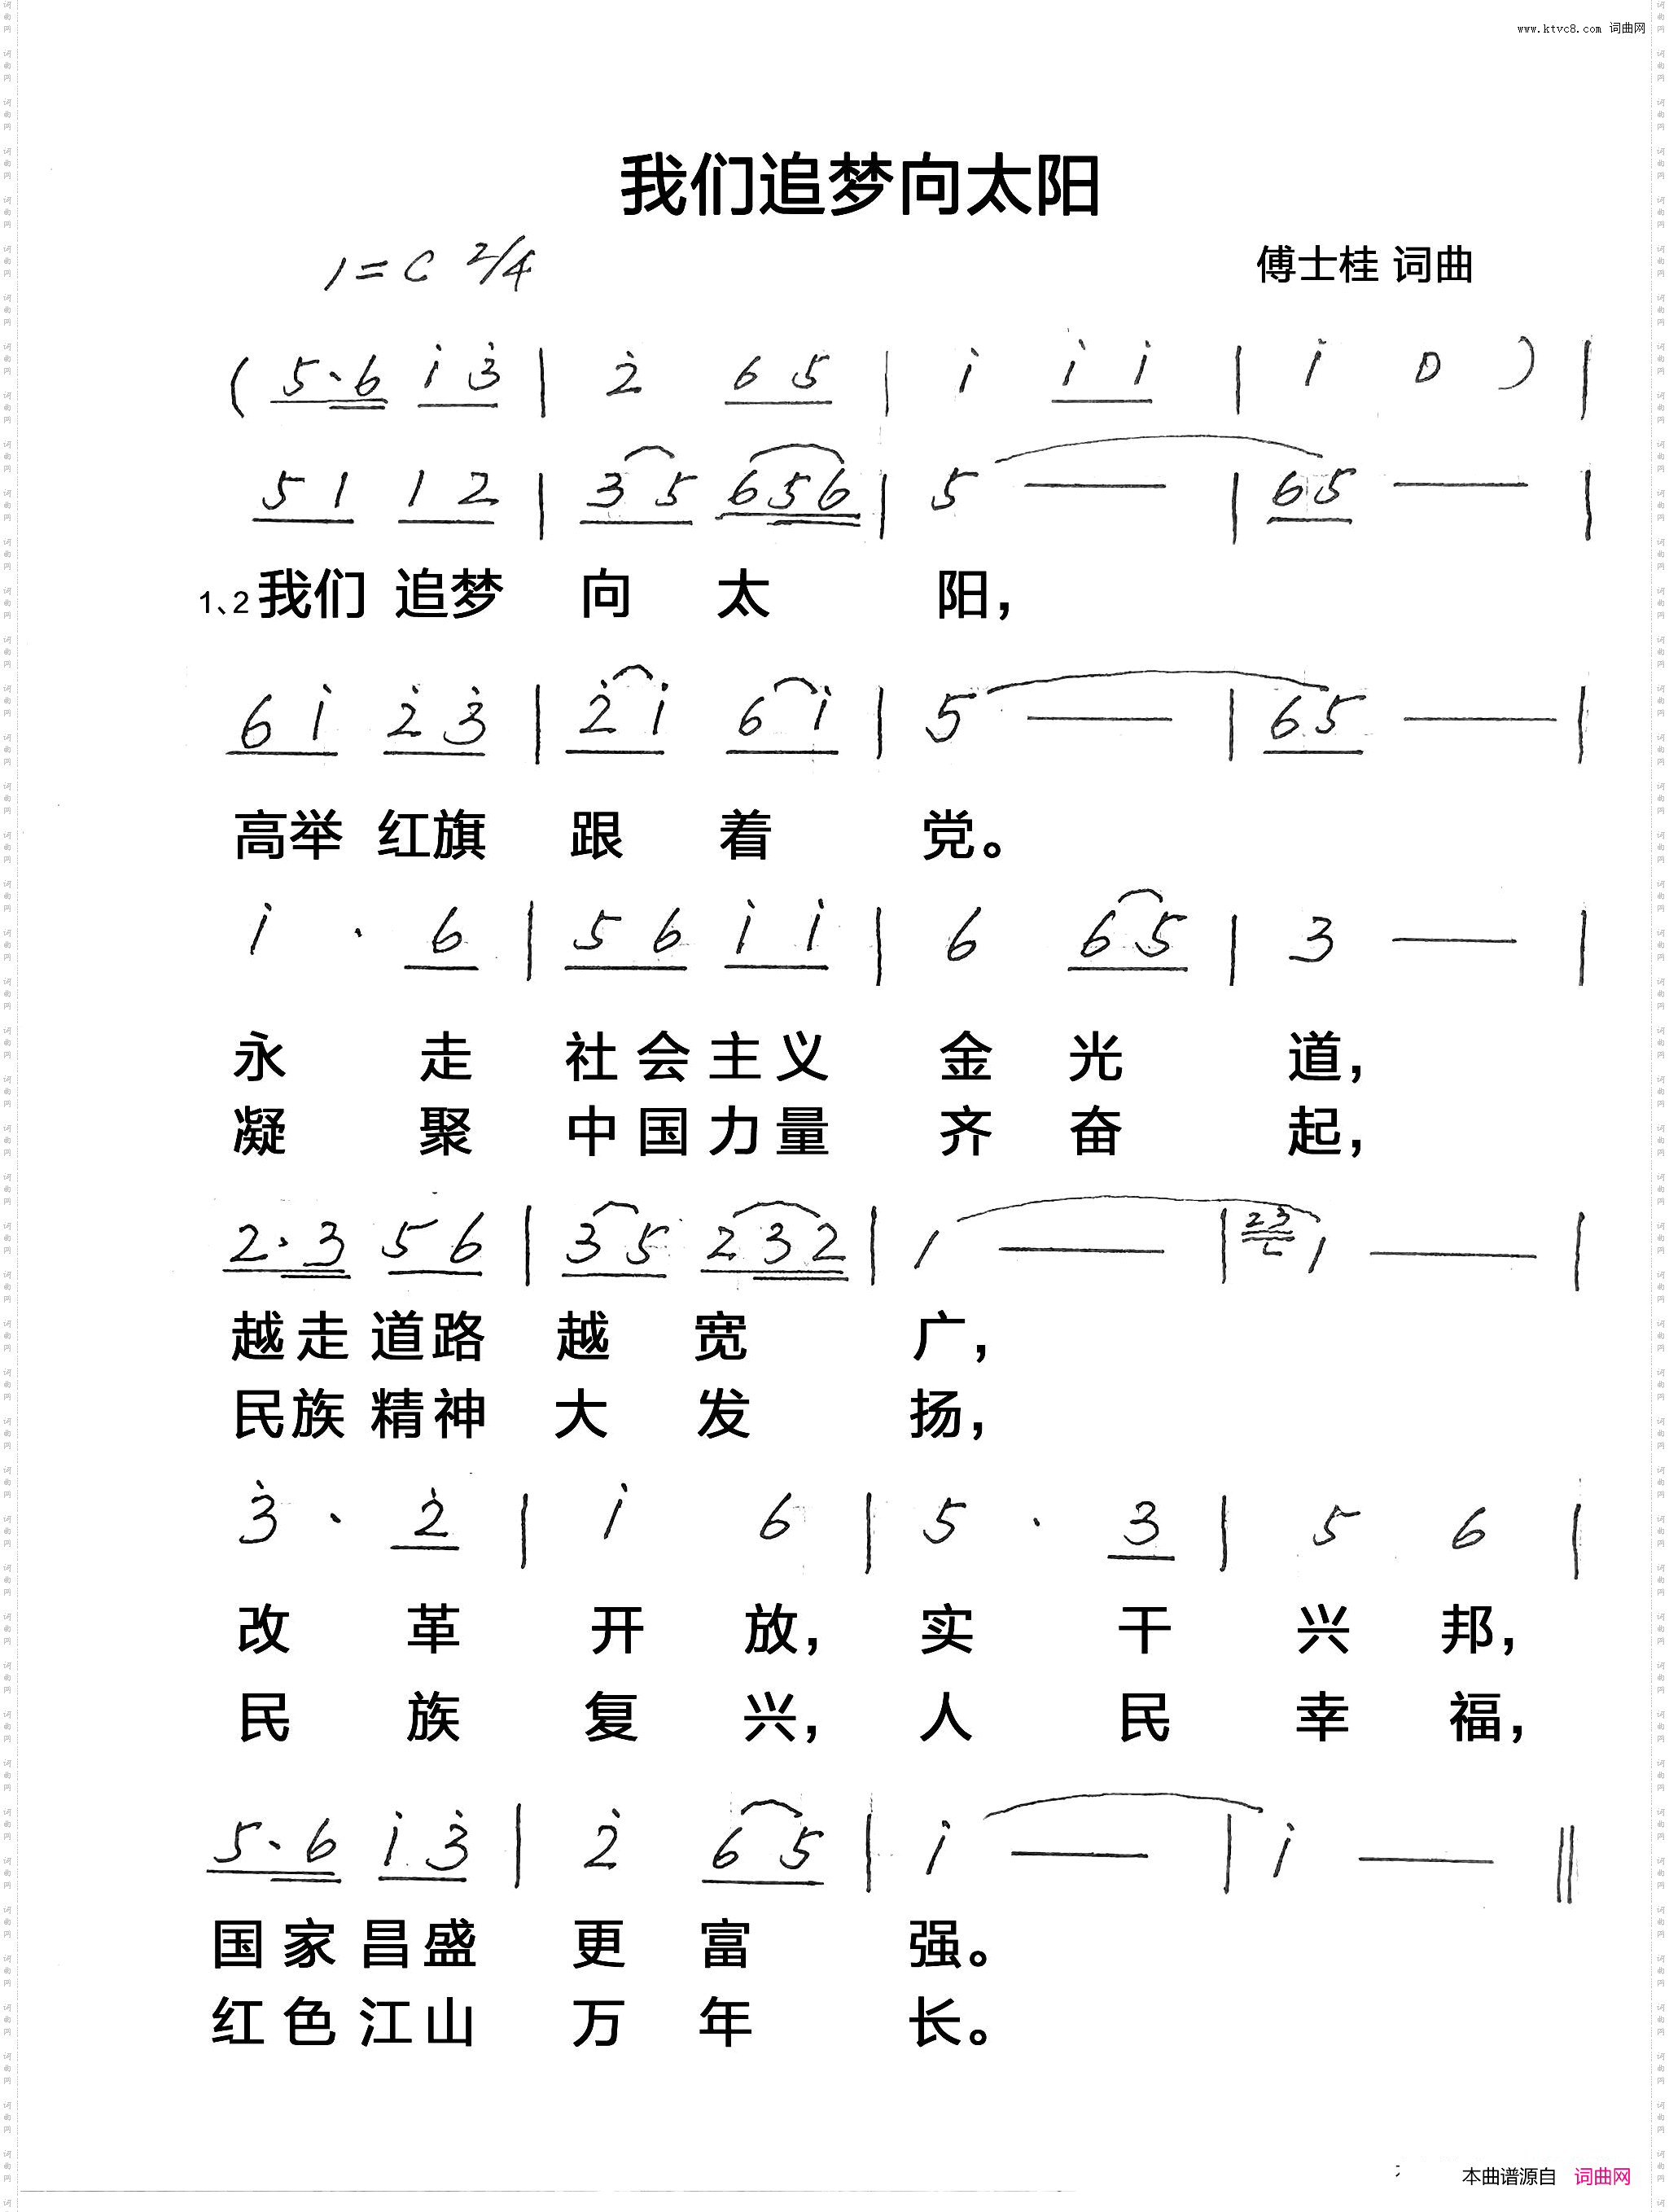 www.ktvc8.com 词曲网
我们追梦向太阳
1=C 2/4 傅士桂 词曲
( 5·6 i 3̇ | 2̇ 6 5 | i i i | i 0 ) |
5 1 1 2 | 3 5 6 5 6 | 5 — | 6 5 — |
1、2 我们 追梦 向 太 阳，
6 i 2̇ 3̇ | 2̇ i 6 i | 5 — | 6 5 — |
高举 红旗 跟 着 党。
i · 6 | 5 6 i i | 6 6 5 | 3 — |
永 走 社 会 主 义 金 光 道，
凝 聚 中 国 力 量 齐 奋 起，
2·3 5 6 | 3 5 2 3 2 | 1 — | 2 3 1 — |
越 走 道 路 越 宽 广，
民 族 精 神 大 发 扬，
3̇ · 2̇ | i 6 | 5 · 3 | 5 6 |
改 革 开 放， 实 干 兴 邦，
民 族 复 兴， 人 民 幸 福，
5·6 i 3̇ | 2̇ 6 5 | i — | i — ‖
国 家 昌 盛 更 富 强。
红 色 江 山 万 年 长。
本曲谱源自 词曲网